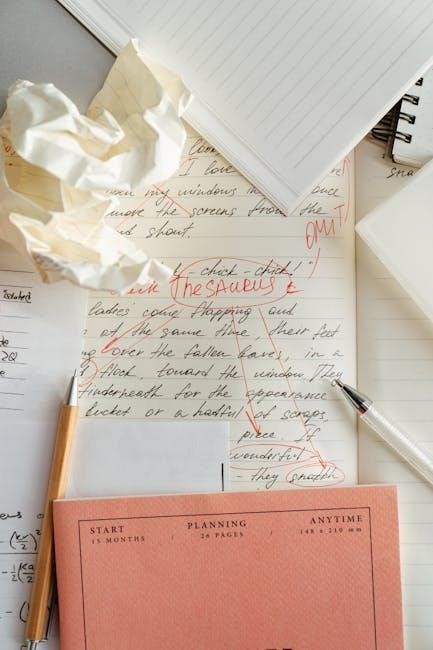 I love
my windows in once
move the screens from the
shout.
OMIT
- chick - chick!
THESAURUS
ladies come flapping and
at the same time, their feet
over the fallen leaves, in a
flock, toward the window. They
underneath for the appearance
bucket or a hatful of scraps,
piece. If
wonderful
- they snatch
isolated
START PLANNING ANYTIME
15 MONTHS / 26 PAGES / 148 x 210 mm